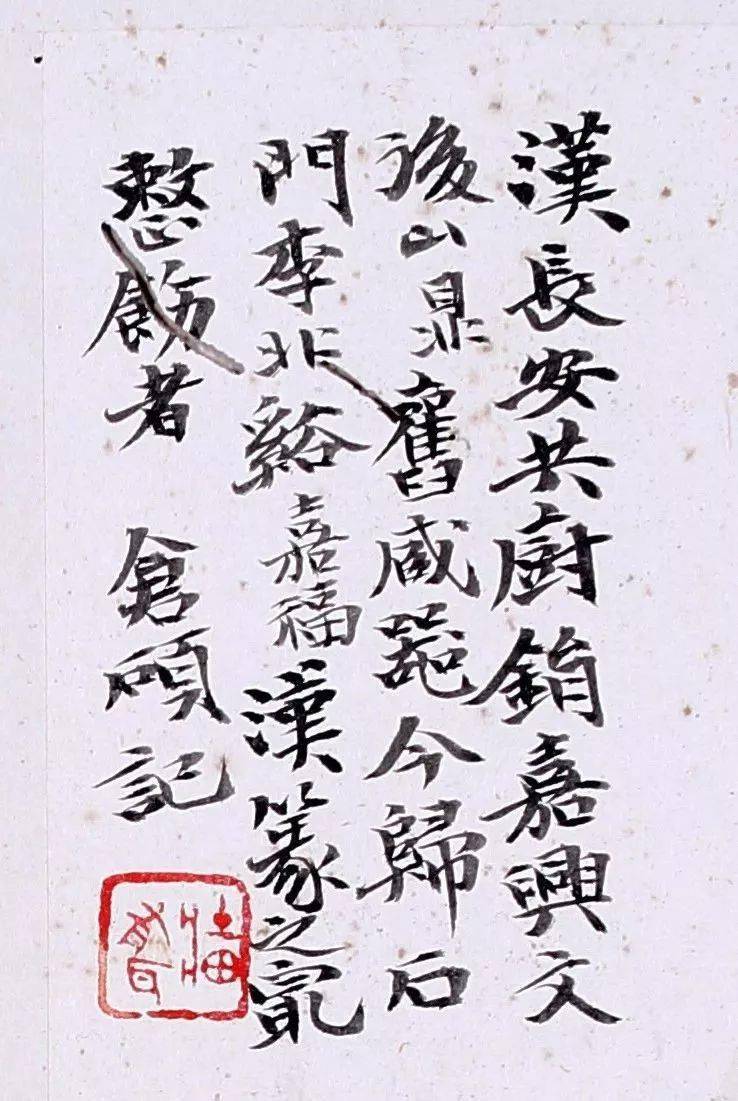 漢長安共廚鋗嘉興文
後山鼎舊咸器今歸石
門李北谿嘉福漢篆之冣
整飭者 倉碩記